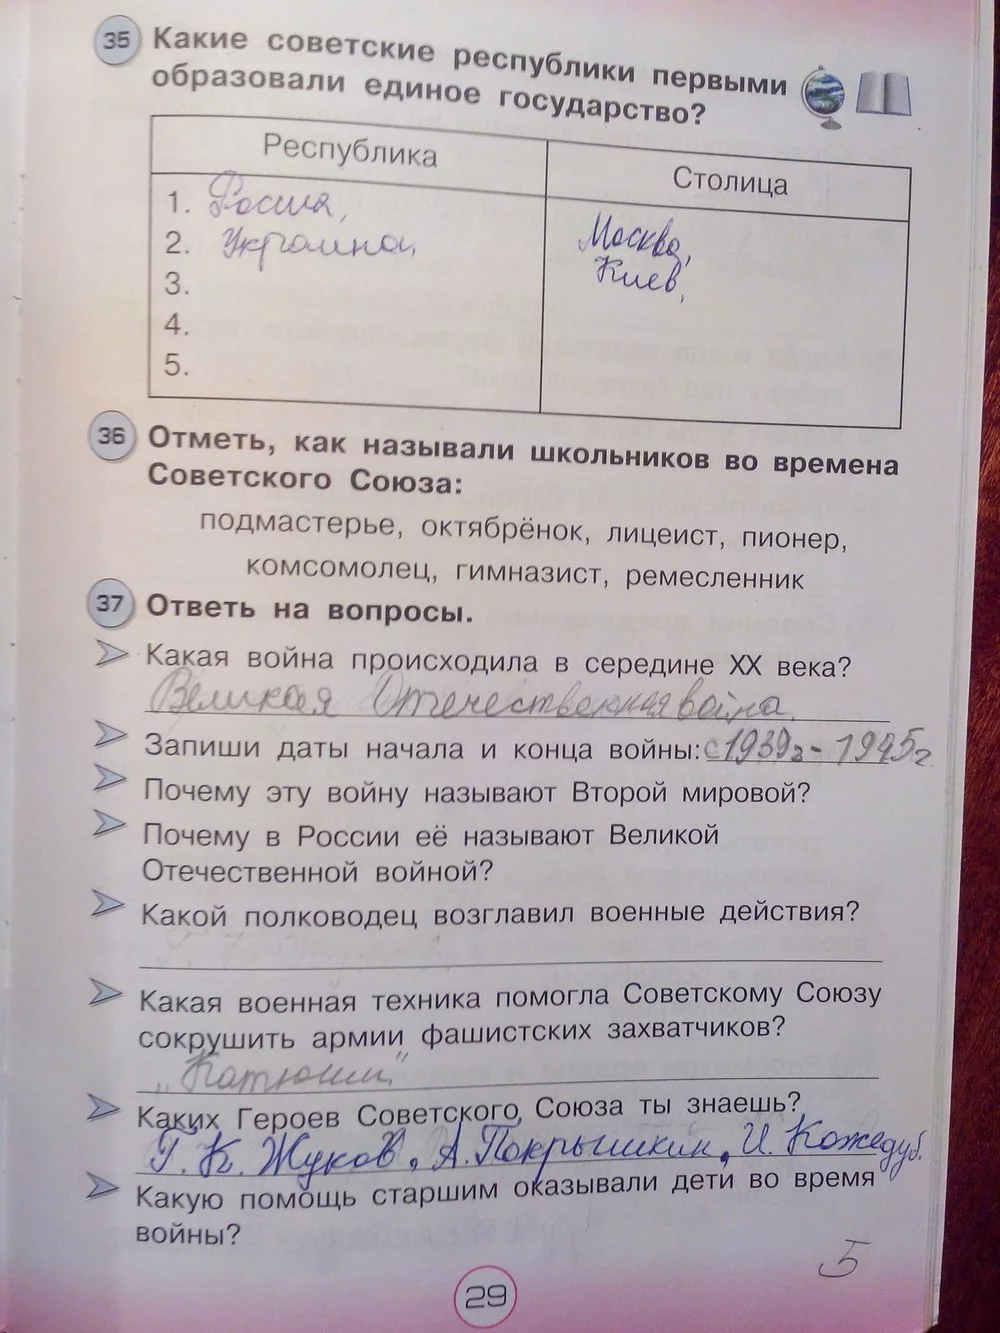 35 Какие советские республики первыми
образовали единое государство?
Республика Столица
1. Россия,
2. Украина, Москва,
3. Киев,
4.
5.
36 Отметь, как называли школьников во времена
Советского Союза:
подмастерье, октябрёнок, лицеист, пионер,
комсомолец, гимназист, ремесленник
37 Ответь на вопросы.
Какая война происходила в середине XX века?
Великая Отечественная война.
Запиши даты начала и конца войны: с 1939г - 1945г
Почему эту войну называют Второй мировой?
Почему в России её называют Великой
Отечественной войной?
Какой полководец возглавил военные действия?
Какая военная техника помогла Советскому Союзу
сокрушить армии фашистских захватчиков?
„Катюши"
Каких Героев Советского Союза ты знаешь?
Г. К. Жуков, А. Покрышкин, И. Кожедуб.
Какую помощь старшим оказывали дети во время
войны?
5
29